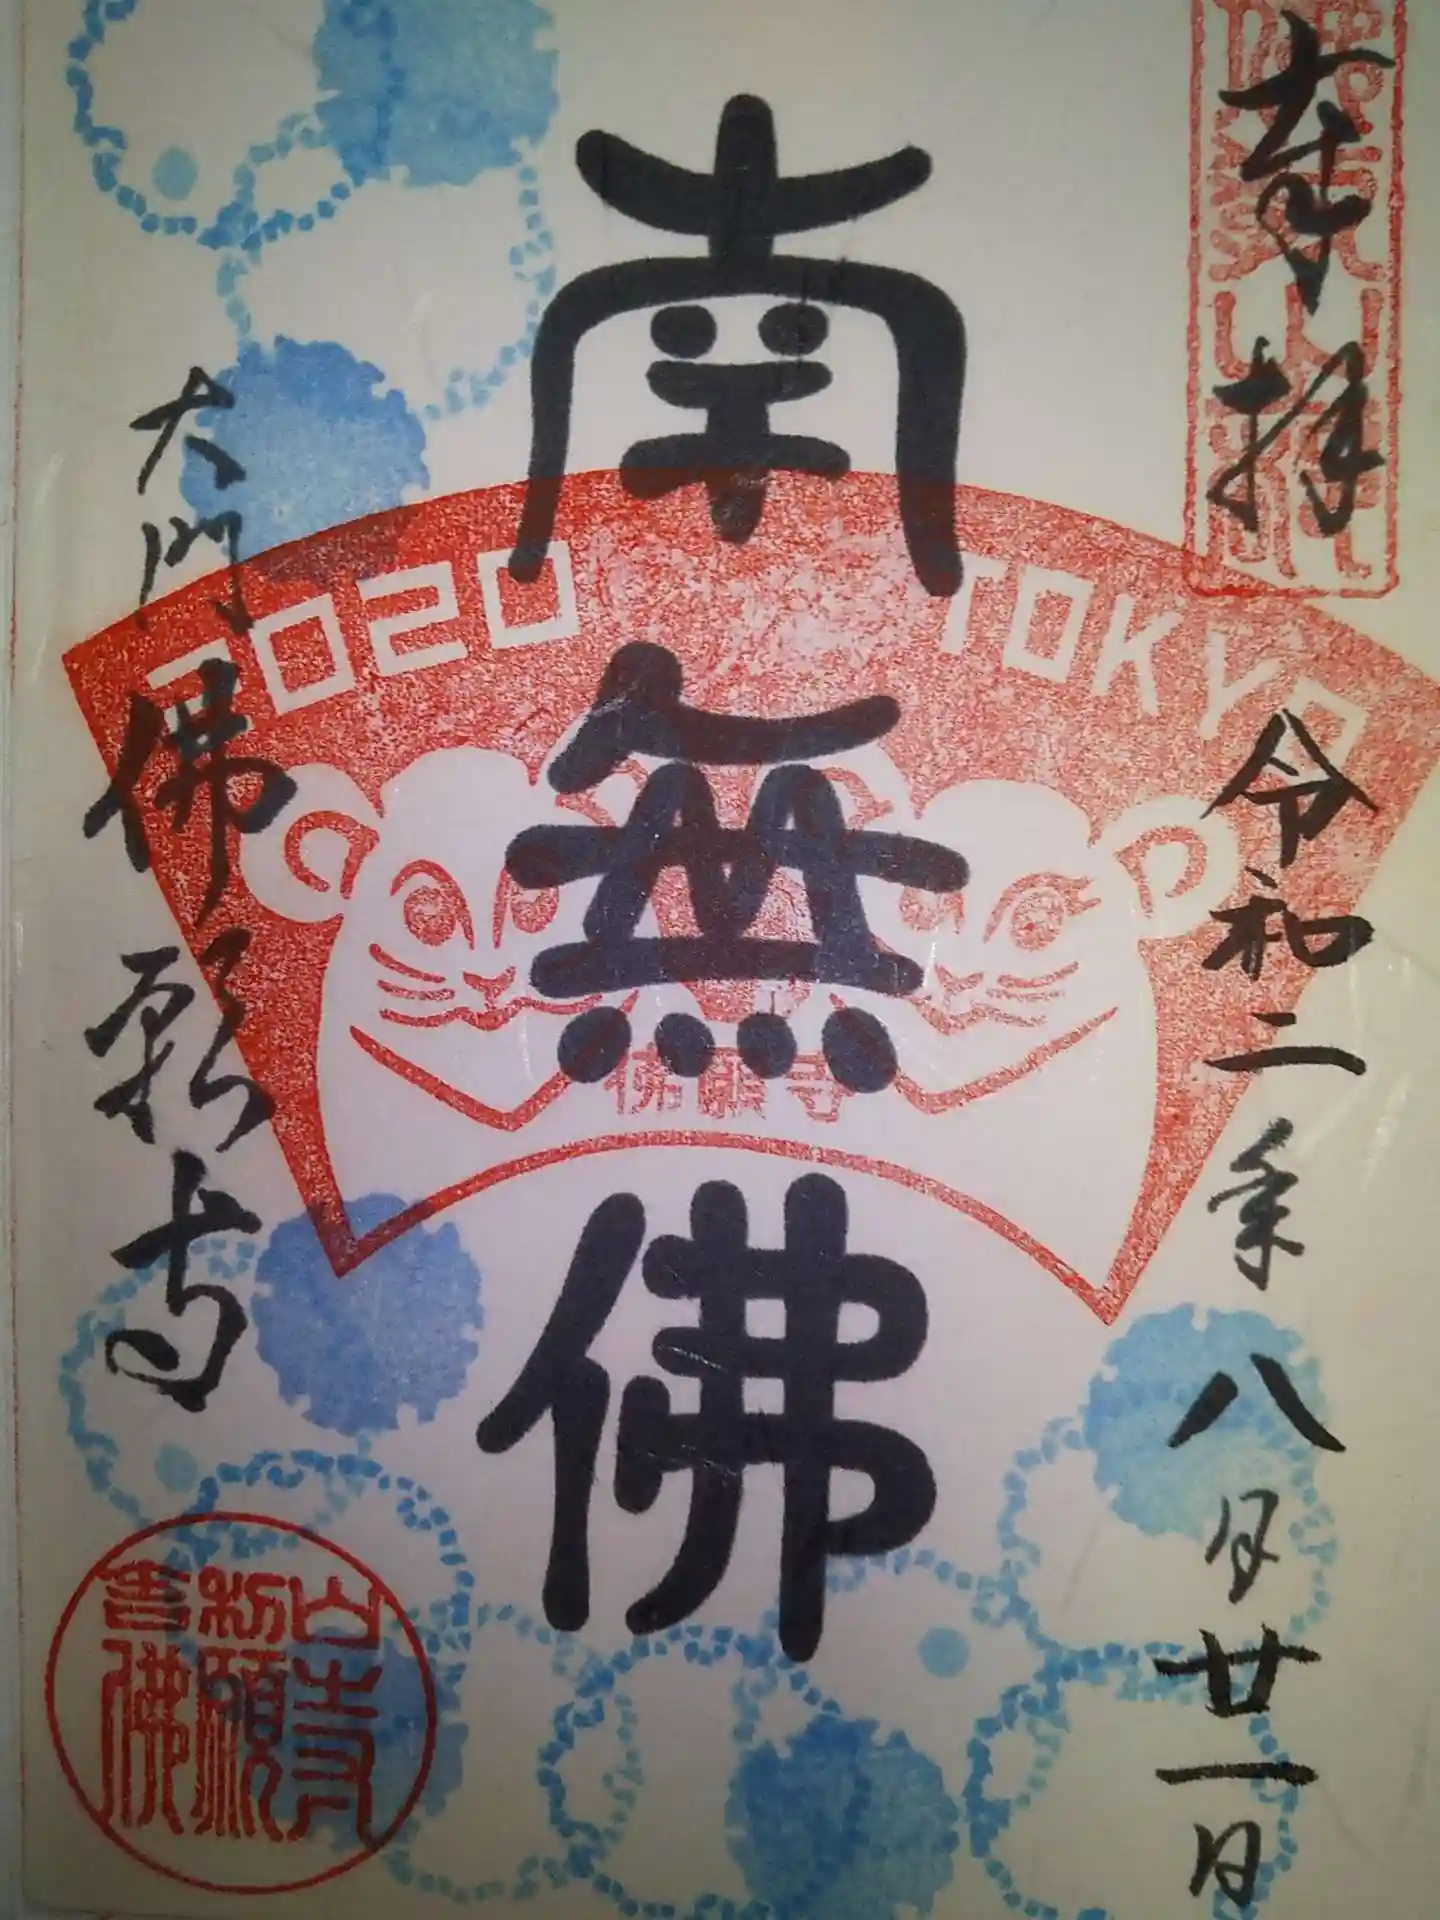 奉拝
令和二年八月廿一日
南無佛
2020 TOKYO
佛願寺
大門
佛願寺